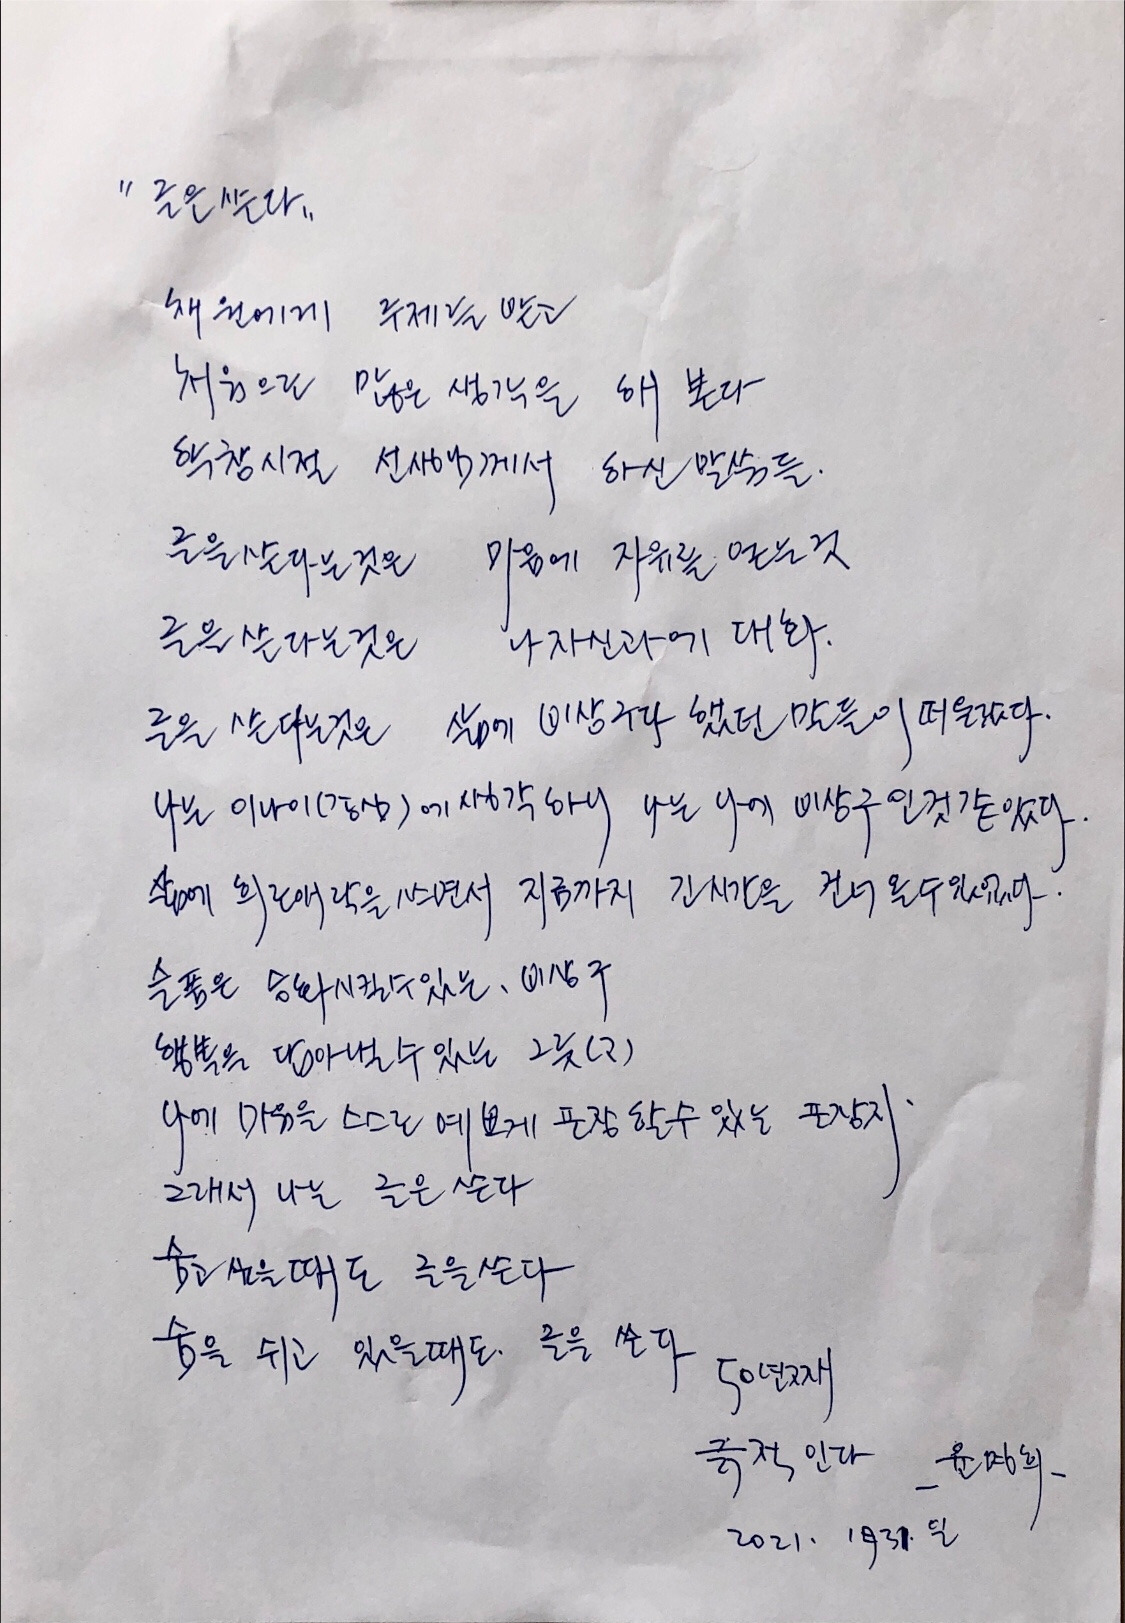 "글은 쓴다"
채원에게 주제를 받고
처음으로 많은 생각을 해 본다
학창시절 선생님께서 하신 말씀들.
글을 쓴다는것은 마음에 자위를 얻는것
글을 쓴다는것은 나 자신과에 대화.
글을 쓴다는것은 삶에 비상구다 했던 말들이 떠올랐다.
나는 이나이(감성)에 생각하니 나는 나에 비상구인것 같았다.
삶에 희로애락을 쓰면서 지금까지 긴시간을 건너 올수있었다.
슬픔은 승화시킬수있는、비상구
행복을 담아낼수있는 그릇(고)
나에 마음을 스스로 예쁘게 포장할수있는 포장지
그래서 나는 글은 쓴다
숨고 싶을때도 글을쓴다
숨을 쉬고 있을때도. 글을 쓴다
50년째
끅적인다 -윤경희-
2021. 1월31.일